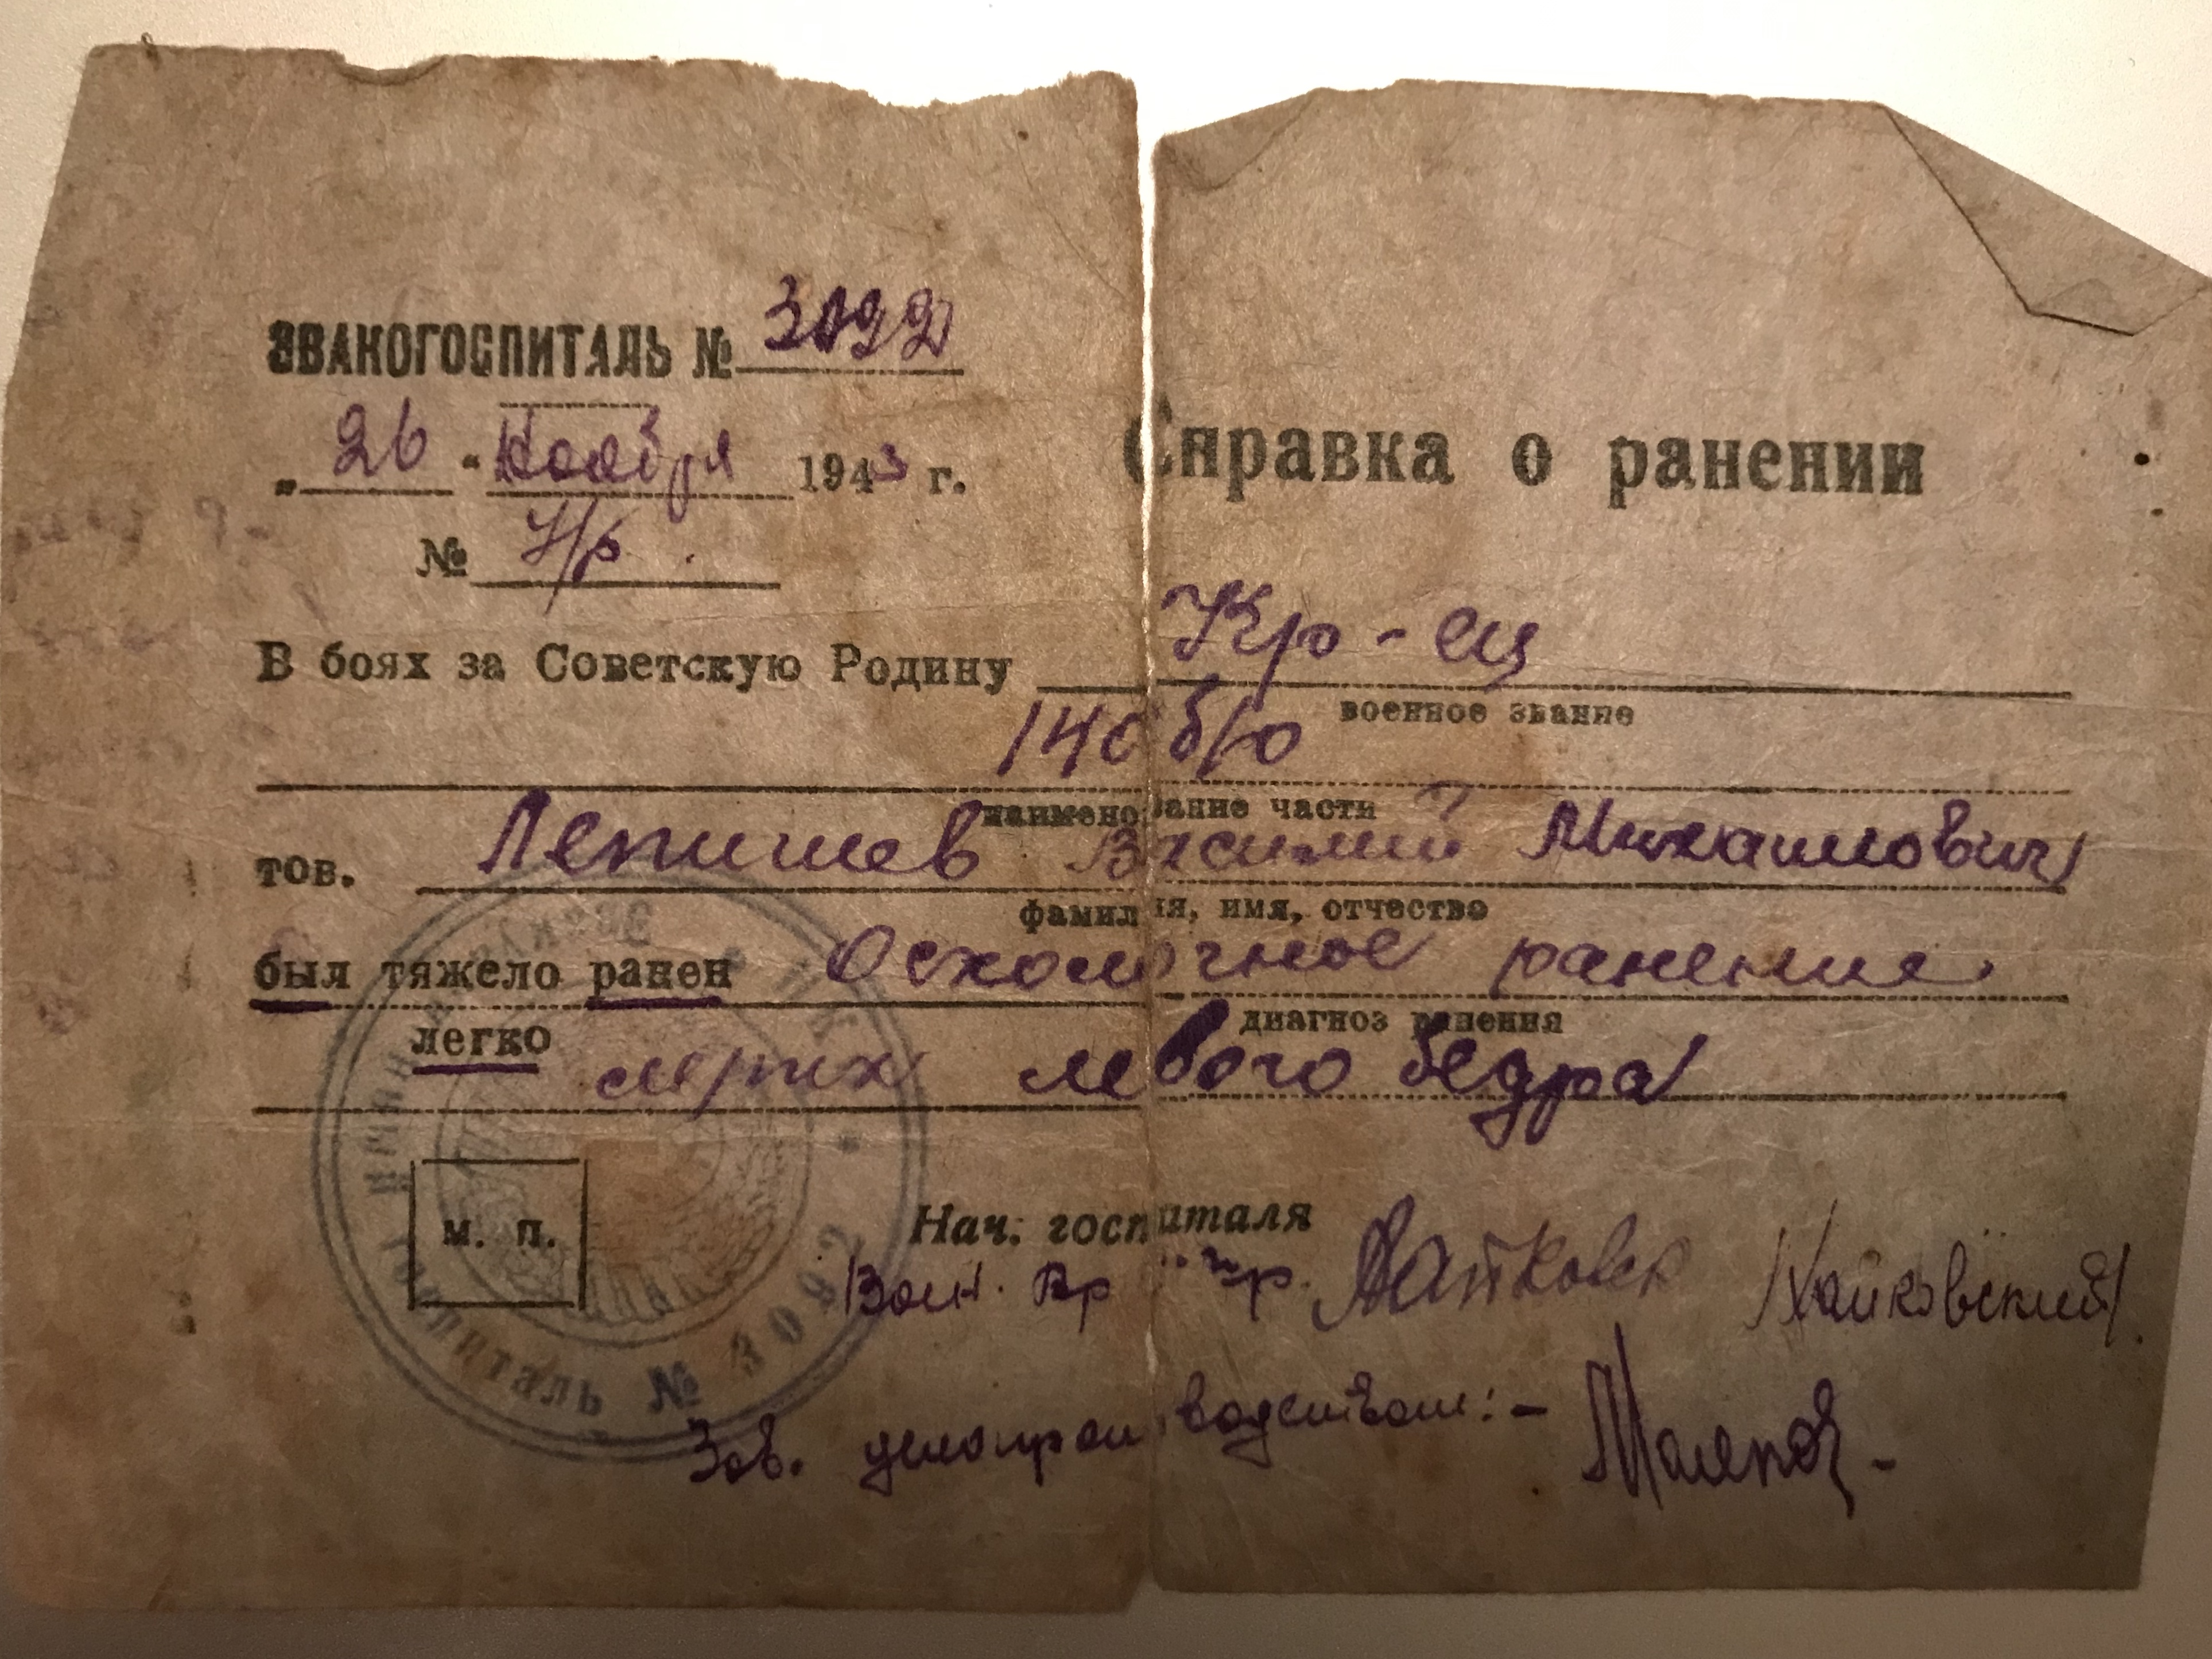 ЭВАКОГОСПИТАЛЬ № 3092
„ 26 “ Ноября 1943 г.
№ Н/р.
Справка о ранении
В боях за Советскую Родину Кр-ец
военное звание
140
наименование части
тов. Лепишев Василий Михайлович
фамилия, имя, отчество
был тяжело ранен Осколочное ранение
диагноз ранения
легко мягких левого бедра
м. п.
Нач. госпиталя
Воен. Вр р. /Хайковский/.
Зав. делопроизводством: -
Госпиталь № 3092